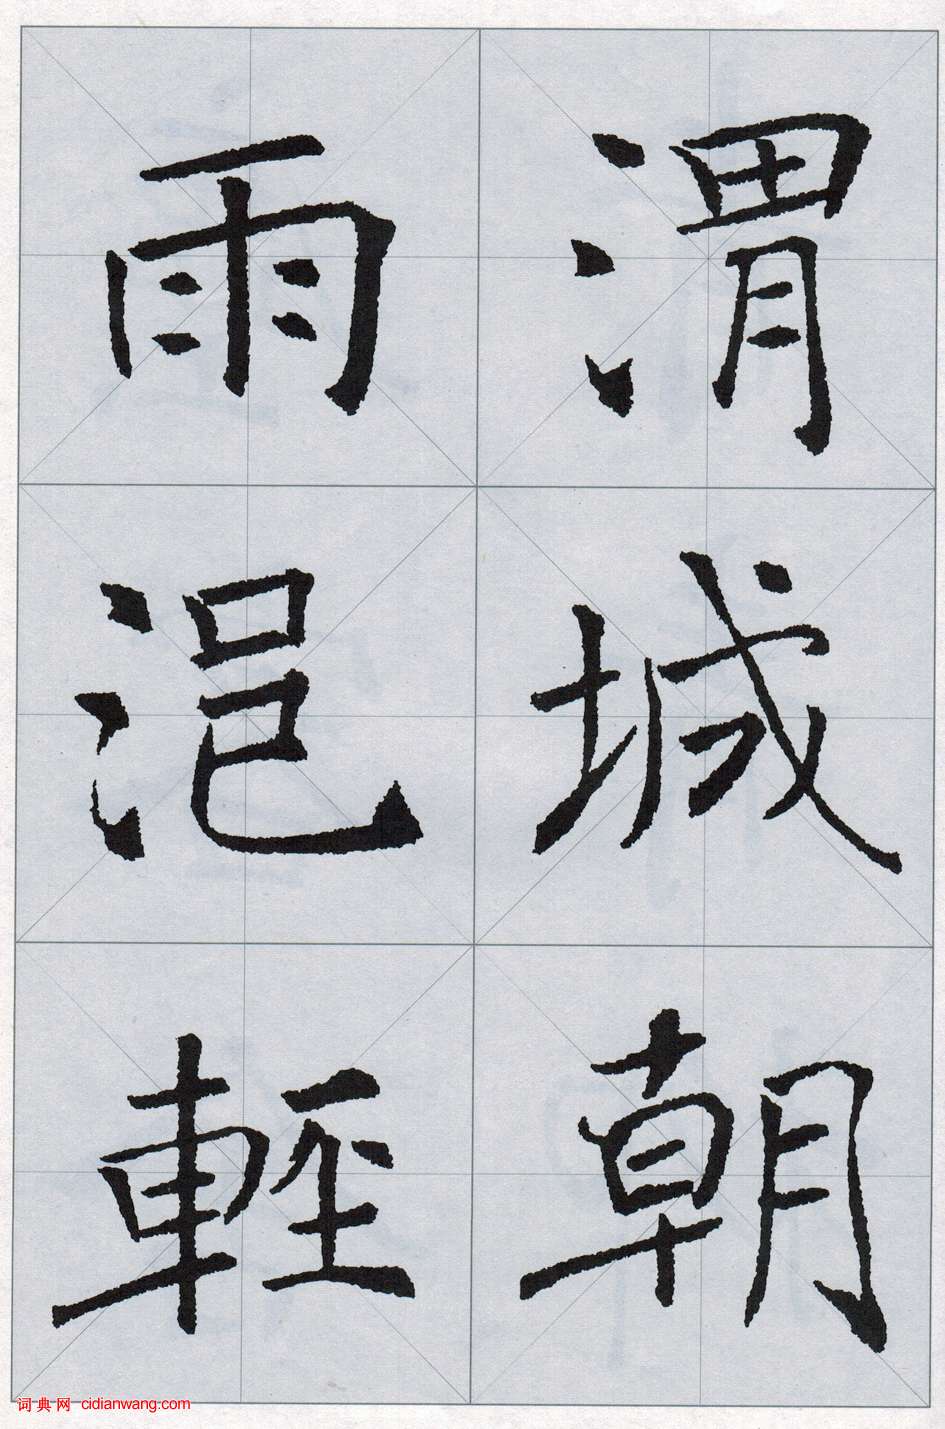 渭城朝
雨浥輕
词典网 cidianwang.com